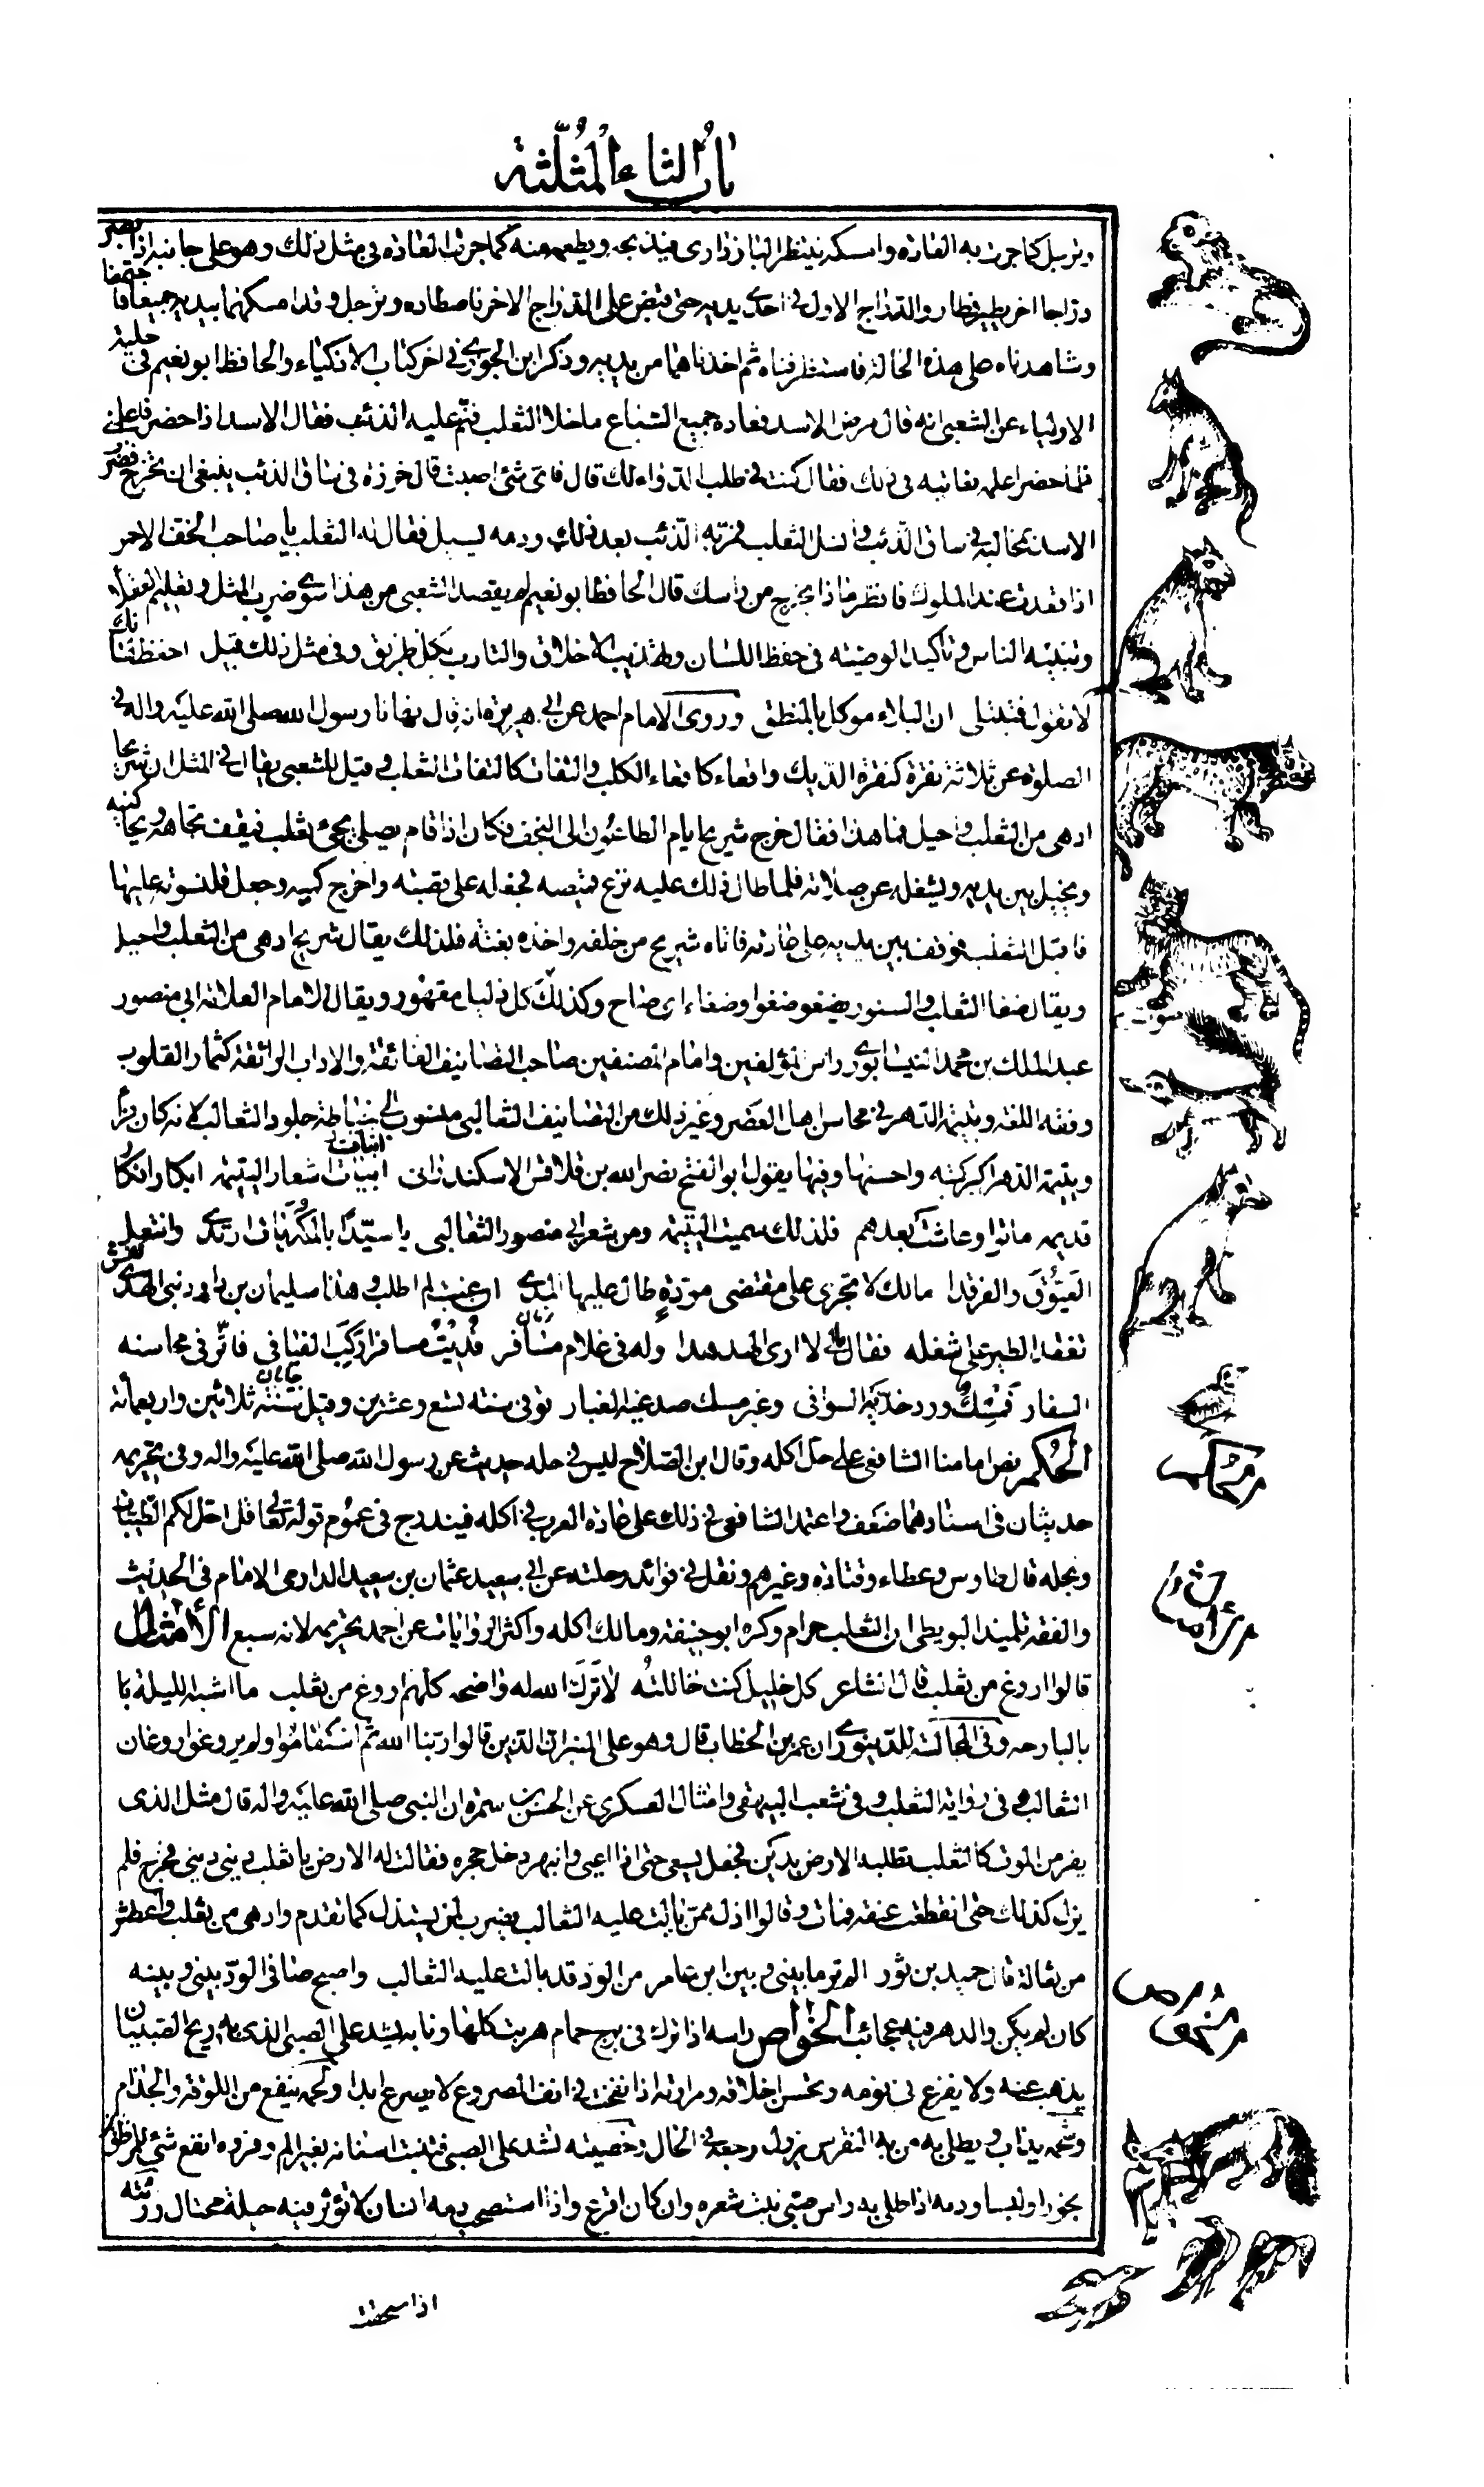 باب الثاء المثلثة
ويرسل كما جرت به العادة وامسكه ينتظر البازدارى فيذبحه ويطعمه منه كما جرت العادة فى مثل ذلك وهو على جانبه اذ ابصر
دراجا اخر يطير فطار والدراج الاول فى احدى يديه حتى قبض على الدراج الاخر فاصطاده ونزجل وقد امسكهما بيديه جميعا فاجتمعنا
وشاهدناه على هذه الحالة فاستظرفناه ثم اخذناهما من يديه وذكر ابن الجوزى فى اخر كتاب الاذكياء والحافظ ابو نعيم فى حلية
الاولياء عن الشعبى انه قال مرض الاسد فعاده جميع السباع ما خلا الثعلب فنم عليه الذئب فقال الاسد اذا حضر فاعلمنى
فلما حضر اعلمه فعاتبه فى ذلك فقال كنت فى طلب الدواء لك قال فاى شئ اصبت قال خرزة فى ساق الذئب ينبغى ان تخرج فضرب
الاسد بمخالبه فى ساق الذئب وانسل الثعلب فمر به الذئب بعد ذلك ودمه يسيل فقال له الثعلب يا صاحب الخف الاحمر
اذا قعدت عند الملوك فانظر ماذا يخرج من راسك قال الحافظ ابو نعيم لم يقصد الشعبى من هذا سوى ضرب المثل وتعليم العقلاء
وتنبيه الناس وتاكيد الوصية فى حفظ اللسان وتهذيب الاخلاق والتادب بكل طريق وفى مثل ذلك قيل احفظ لسانك
لا تقول فتبتلى ان البلاء موكل بالمنطق وروى الامام احمد عن ابى هريرة انه قال نهانا رسول الله صلى الله عليه واله فى
الصلوة عن ثلاثة نقرة كنقرة الديك واقعاء كاقعاء الكلب والتفات كالتفات الثعلب وقيل للشعبى يقال فى المثل ان شريحا
ادهى من الثعلب واحيل فما هذا فقال خرج شريحا ايام الطاعون الى النجف فكان اذا قام يصلى يجئ ثعلب فيقف تجاهه ويحاكيه
ويخيل بين يديه ويشغله عن صلاته فلما طال ذلك عليه نزع قميصه فجعله على قصبة واخرج كميه وجعل قلنسوته عليها
فاقبل الثعلب فوقف بين يديه على عادته فاتاه شريح من خلفه واخذه بغتة فلذلك يقال شريح ادهى من الثعلب واحيل
ويقال ضغا الثعلب والسنور يضغو ضغوا وضغاء اى صاح وكذلك كل ذليل مقهور ويقال الامام العلامة ابى منصور
عبد الملك بن محمد النيسابورى راس المؤلفين وامام المصنفين صاحب التصانيف الفائقة والاداب الرائقة كثمار القلوب
وفقه اللغة ويتيمة الدهر فى محاسن اهل العصر وغير ذلك من التصانيف الثعالبى منسوب الى خياطة جلود الثعالب لانه كان فراء
ويتيمة الدهر اكبر كتبه واحسنها وفيها يقول ابو الفتح نصر الله بن قلاقس الاسكندرانى ابيات اشعار اليتيمة ابكار افكار
قديمه ماتوا وعاشت بعدهم فلذلك سميت اليتيمة ومن شعر ابى منصور الثعالبى يا سيدا بالمكرمات ارتدى وانتعل
العيوق والفرقدا مالك لا تجرى على مقتضى مودة طال عليها المدى ان غبت لم اطلب وهذا سليمان بن داود نبى الهدى
تفقد الطير على شغله فقال مالى لا ارى الهدهدا وله فى غلام مسافر فديت مسافرا ركب الفيافى فاثر فى محاسنه
السفار فمسك ورد خديه السوافى وغبر مسك صدغيه الغبار توفى سنة تسع وعشرين وقيل سنة ثلاثين واربعمائة
الحكم نص امامنا الشافعى على حل اكله وقال ابن الصلاح ليس فى حله حديث عن رسول الله صلى الله عليه واله وفى تحريمه
حديثان فى اسنادهما ضعف واعتمد الشافعى فى ذلك على عادة العرب فى اكله فيندرج فى عموم قوله تعالى قل احل لكم الطيبات
وبحله قال طاوس وعطاء وقتادة وغيرهم ونقل فى فوائد رحلته عن ابى سعيد عثمان بن سعيد الدارمى الامام فى الحديث
والفقه تلميذ البويطى ان الثعلب حرام وكره ابو حنيفة ومالك اكله واكثر الروايات عن احمد تحريمه لانه سبع الامثال
قالوا اروغ من ثعلب قال الشاعر كل خليل كنت خاللته لا ترك الله له واضحه كلهم اروغ من ثعلب ما اشبه الليلة با
بالبارحه وفى المجالسة للدينورى ان عمر بن الخطاب قال وهو على المنبر ان الذين قالوا ربنا الله ثم استقاموا ولم يروغوا روغان
الثعالب وفى رواية الثعلب وفى شعب البيهقى وامثال العسكرى عن الحسن بن سمرة ان النبى صلى الله عليه واله قال مثل الذى
يفر من الموت كالثعلب تطلبه الارض بدين فجعل يسعى حتى اذا اعيى وانبهر دخل جحره فقالت له الارض يا ثعلب دينى دينى فخرج فلم
يزل كذلك حتى انقطعت عنقه فمات وقالوا اذل ممن بالت عليه الثعالب يضرب لمن يستذل كما تقدم وادهى من ثعلب واعطش
من ثعالة قال حميد بن ثور الم تر ما بينى وبين ابن عامر من الود قد بالت عليه الثعالب واصبح صافى الود بينى وبينه
كان لم يكن والدهر فيه عجائب الخواص راسه اذا ترك فى برج حمام هربت كلها ونابه يشد على الصبى الذى به ريح الصبيان
يذهب عنه ولا يفزع فى نومه ويحسن اخلاقه ومرارته اذا نفخت فى انف المصروع لا يصرع ابدا ولحمه ينفع من اللوقة والجذام
وشحمه يذاب ويطلى به من به النقرس يزول وجعه فى الحال وخصيته تشد على الصبى فتنبت اسنانه بغير الم وفروه انفع شئ للمرطوبين
بخورا ولبسا ودمه اذا طلى به راس صبى نبت شعره وان كان اقرع واذا استصحب دمه انسان لا تؤثر فيه حيلة محتال ورئته
اذا سحقت